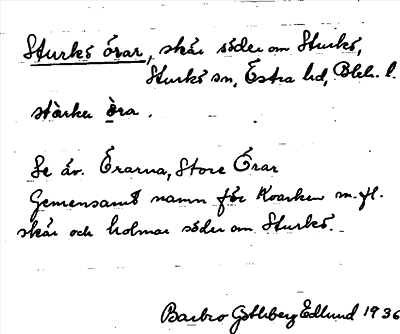 Sturkö örar, skär söder om Sturkö,
Sturkö sn, Östra hd, Blek. l.
stärka öra.
Se äv. Örarna, Store Örar
Gemensamt namn för Kvarken m.fl.
skär och holmar söder om Sturkö.
Barbro Gothberg Edlund 1936